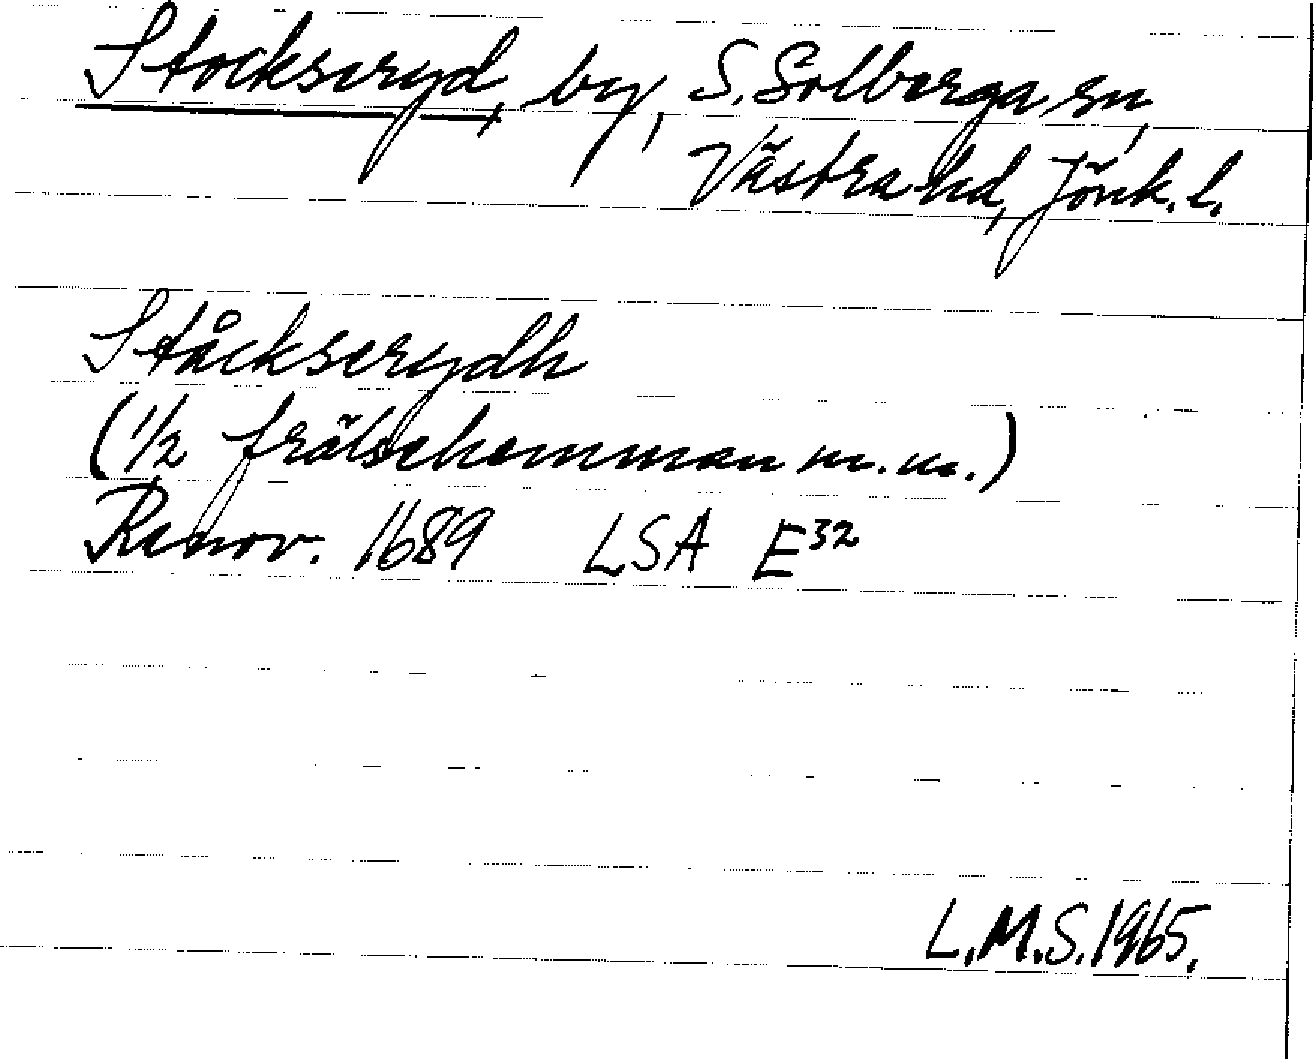 Stockseryd, by, S. Solberga sn,
Västra hd, Jönk. l.
Ståckserydh
(1/2 frälsehemman m. m.)
Renov. 1689 LSA E32
L.M.S. 1965.